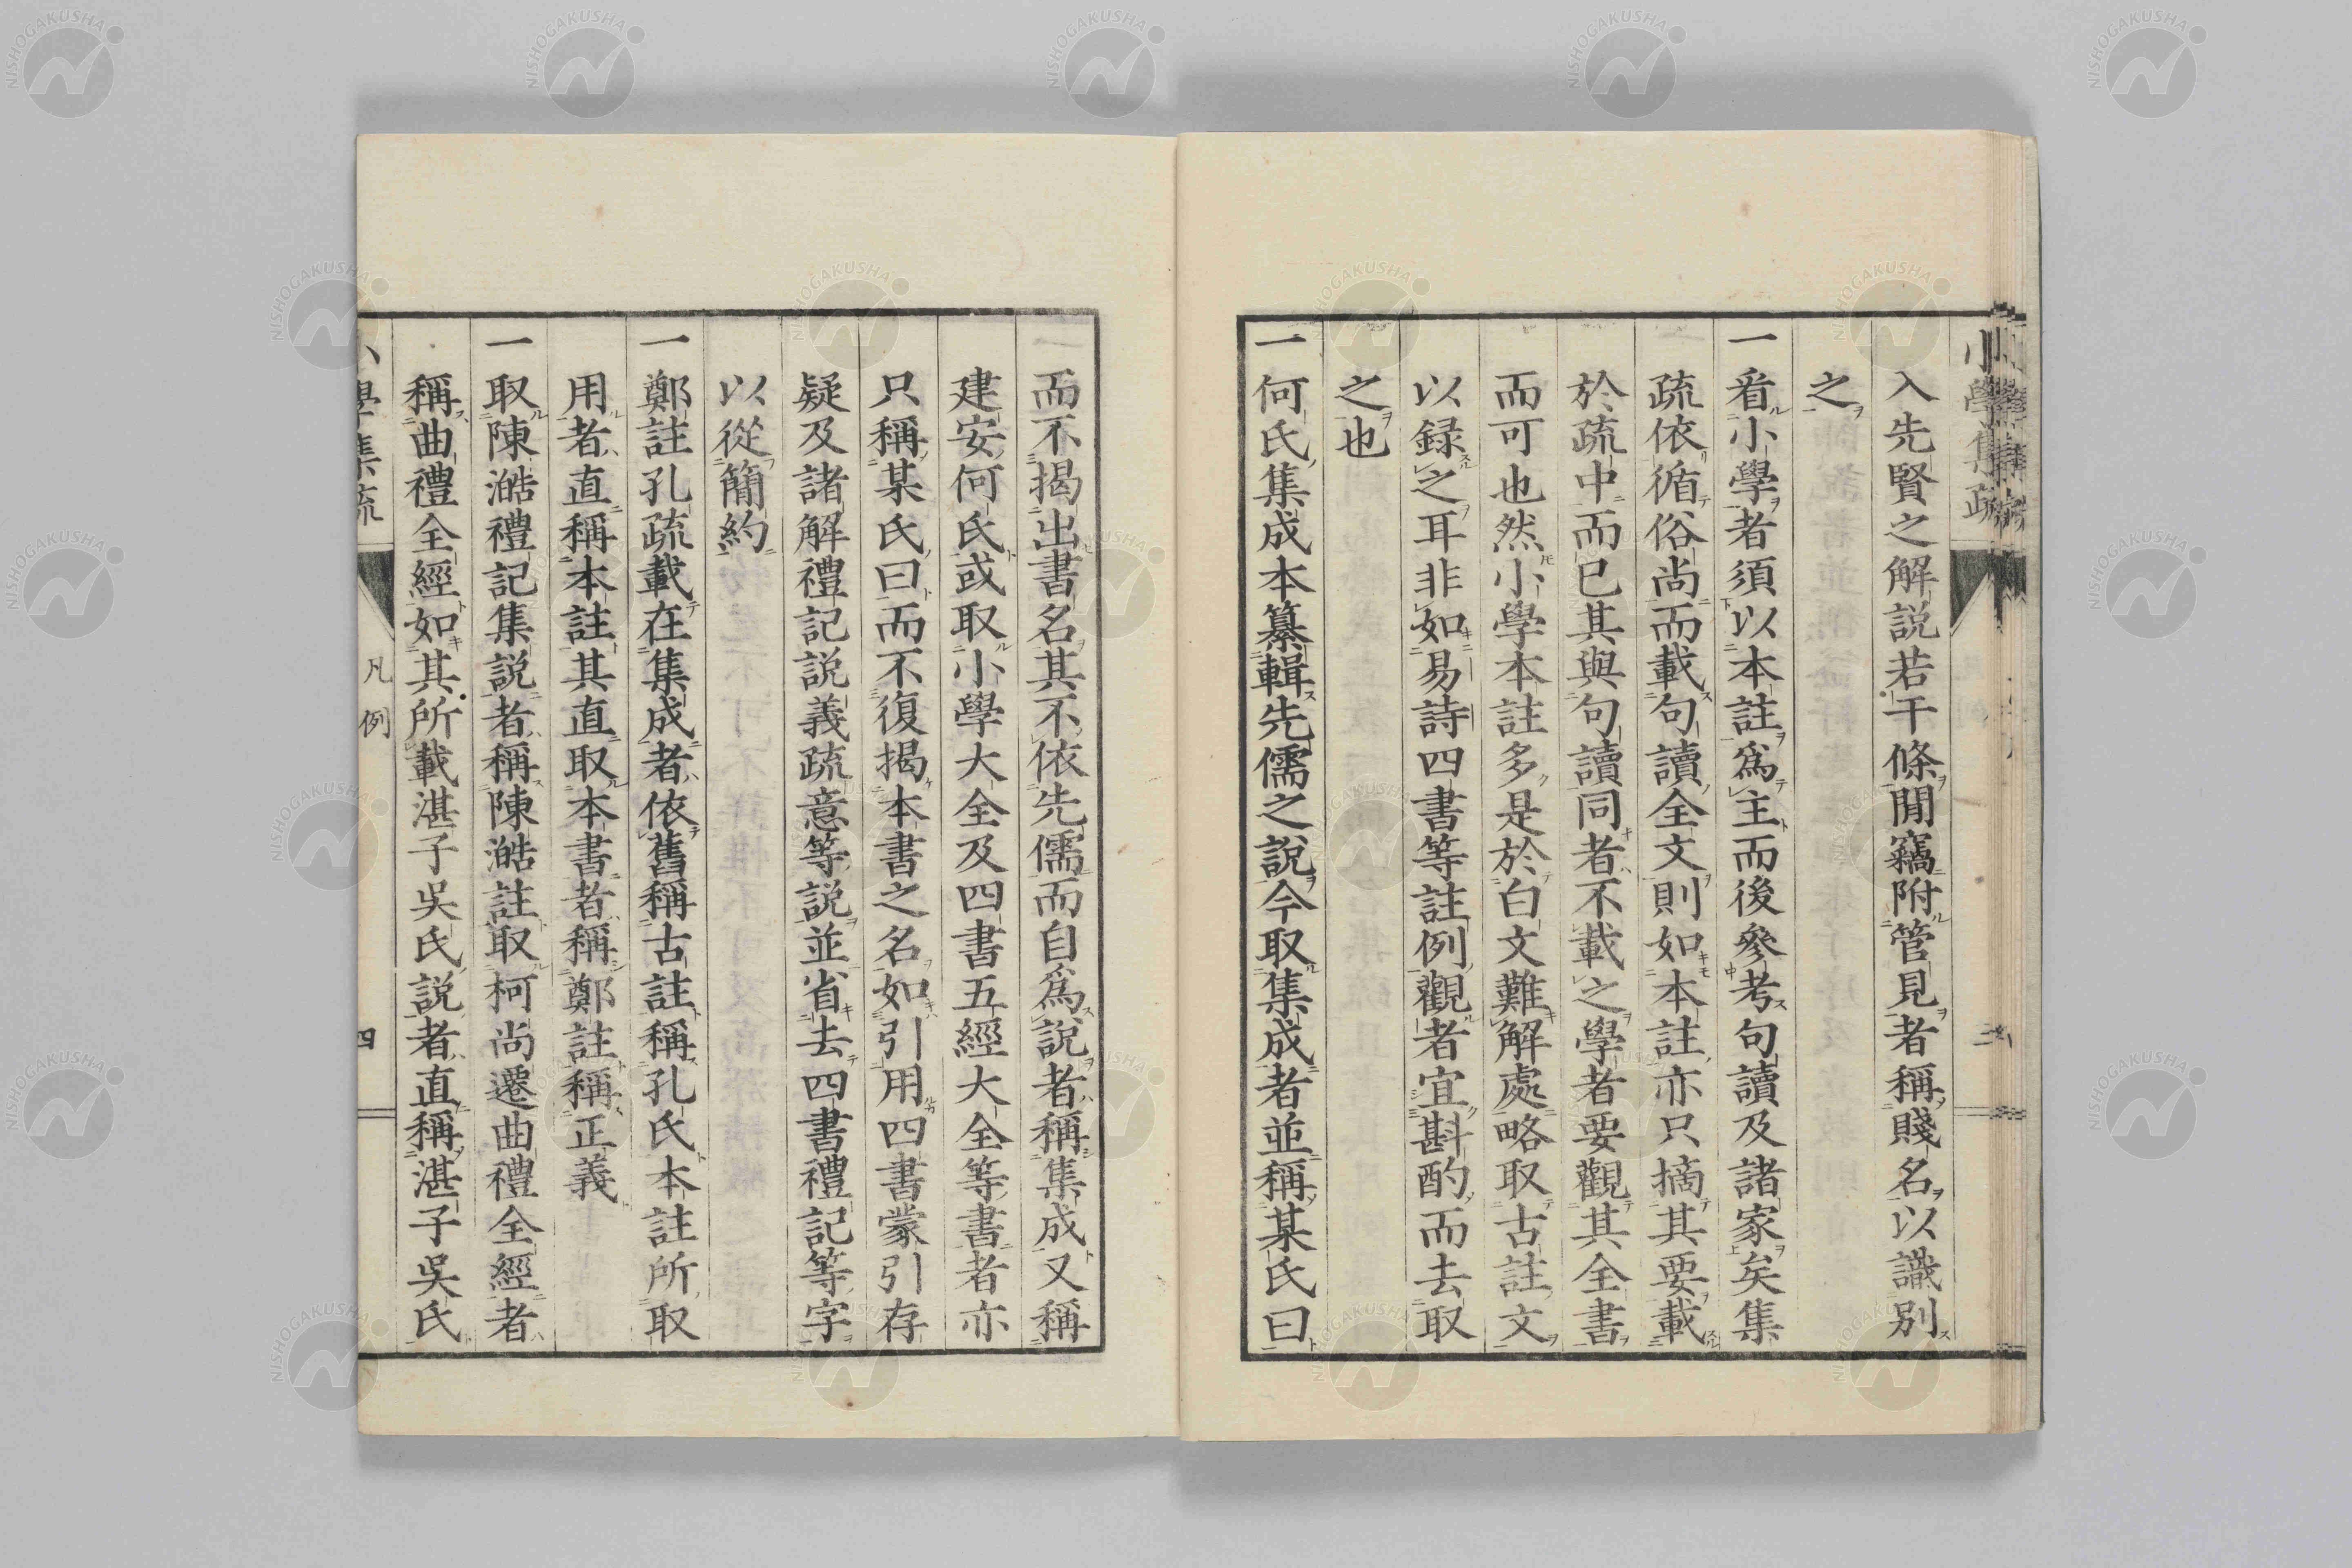 小學集疏
入先賢之解説若干條間竊附管見者稱賤名以識別
之
一看小學者須以本註爲主而後參考句讀及諸家矣集
疏依循俗尚而載句讀全文則如本註亦只摘其要載
於疏中而已其與句讀同者不載之學者要觀其全書
而可也然小學本註多是於白文難解處略取古註文
以録之耳非如易詩四書等註例觀者宜斟酌而去取
之也
一何氏集成本纂輯先儒之説今取集成者並稱某氏曰
而不揭出書名其不依先儒而自爲説者稱集成又稱
建安何氏或取小學大全及四書五經大全等書者亦
只稱某氏曰而不復揭本書之名如引用四書蒙引存
疑及諸解禮記説義疏意等説並省去四書禮記等字
以從簡約
一鄭註孔疏載在集成者依舊稱古註稱孔氏本註所取
用者直稱本註其直取本書者稱鄭註稱正義
一取陳澔禮記集説者稱陳澔註取柯尚遷曲禮全經者
稱曲禮全經如其所載湛子吳氏説者直稱湛子吳氏
小學集疏
凡例
四
NISHOGAKUSHA